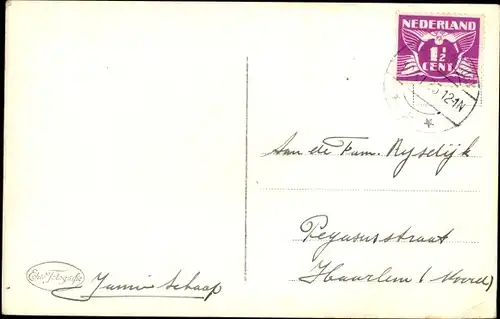 NEDERLAND
1½
CENT
12-1N
Aan de Fam. Rijseldijk
Pegasusstraat
Haarlem (Noord)
Echte Fotografie
Schaap